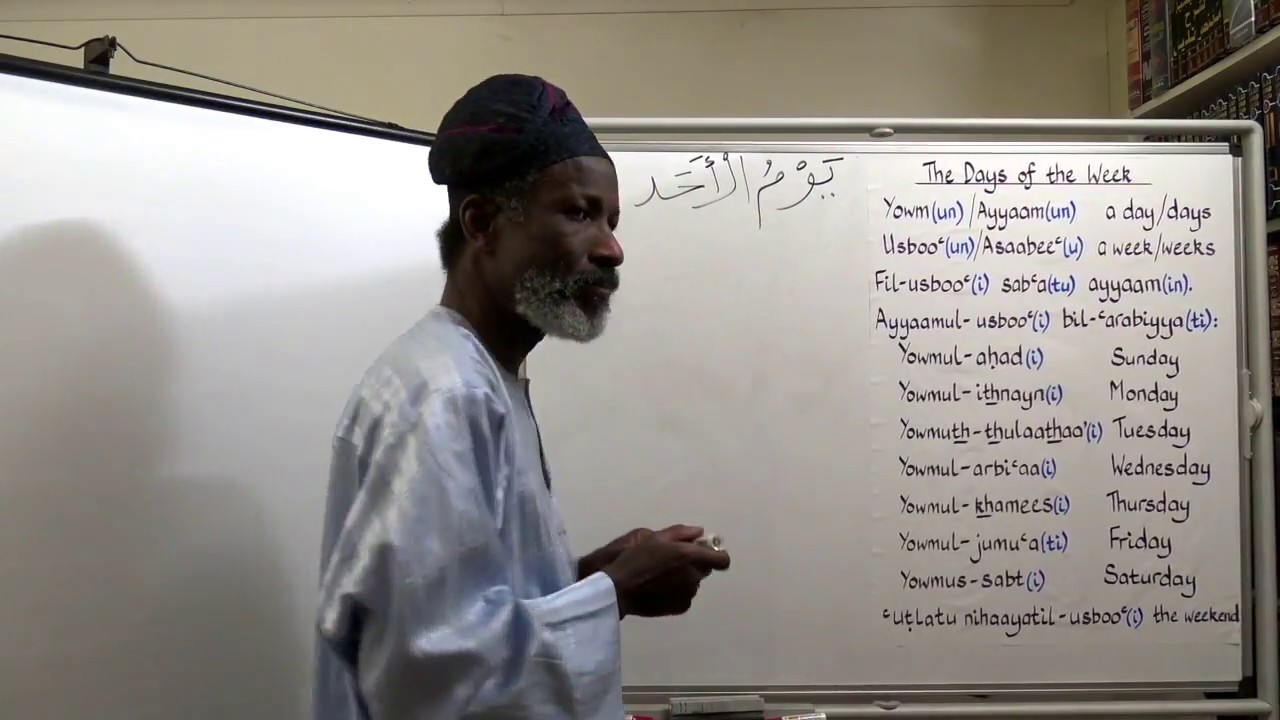 يَوْمُ الْأَحَد
The Days of the Week
Yowm(un)/Ayyaam(un) a day/days
Usbooᶜ(un)/Asaabeeᶜ(u) a week/weeks
Fil-usbooᶜ(i) sabᶜa(tu) ayyaam(in).
Ayyaamul-usbooᶜ(i) bil-ᶜarabiyya(ti):
Yowmul-aḥad(i) Sunday
Yowmul-ithnayn(i) Monday
Yowmuth-thulaathaa'(i) Tuesday
Yowmul-arbiᶜaa(i) Wednesday
Yowmul-khamees(i) Thursday
Yowmul-jumuᶜa(ti) Friday
Yowmus-sabt(i) Saturday
ᶜuṭlatu nihaayatil-usbooᶜ(i) the weekend